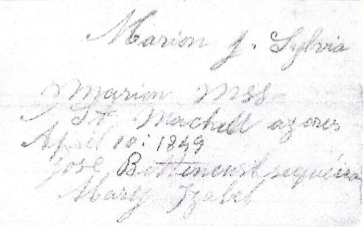 Marion J. Sylvia
Marion Mss
St Machell azores
April 10: 1849
Jose Bettincurt sequeira
Mary Izabel